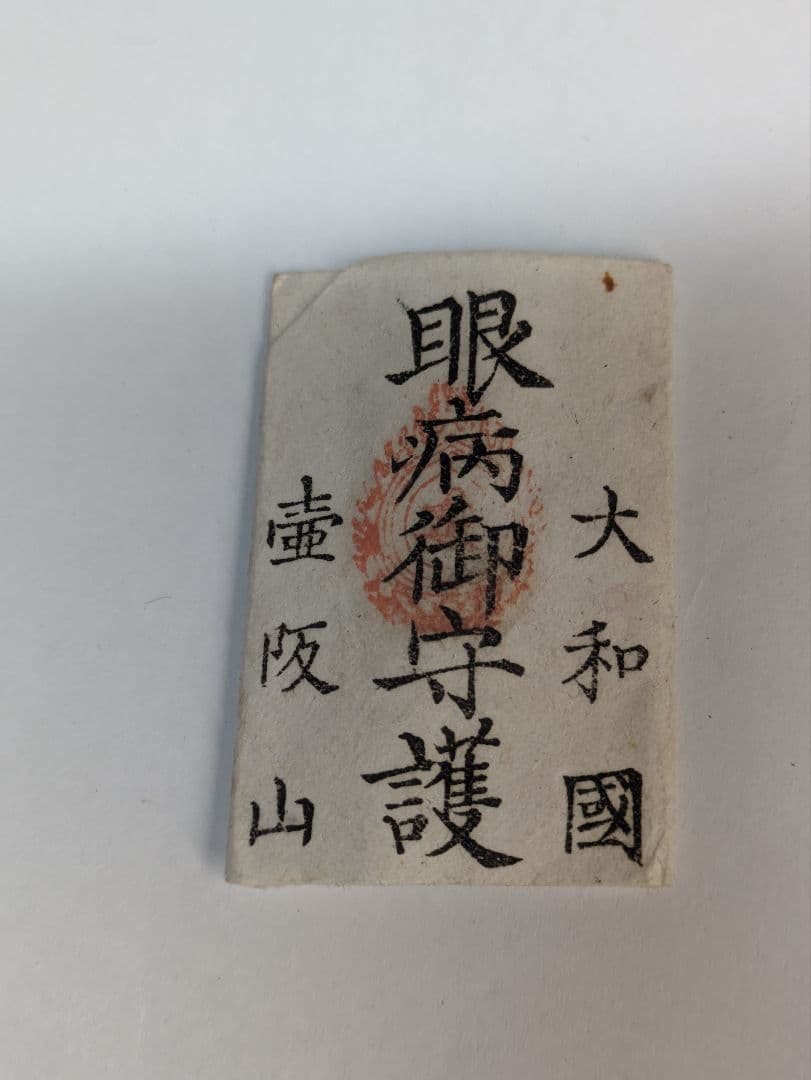 大和國
眼病御守護
壷阪山